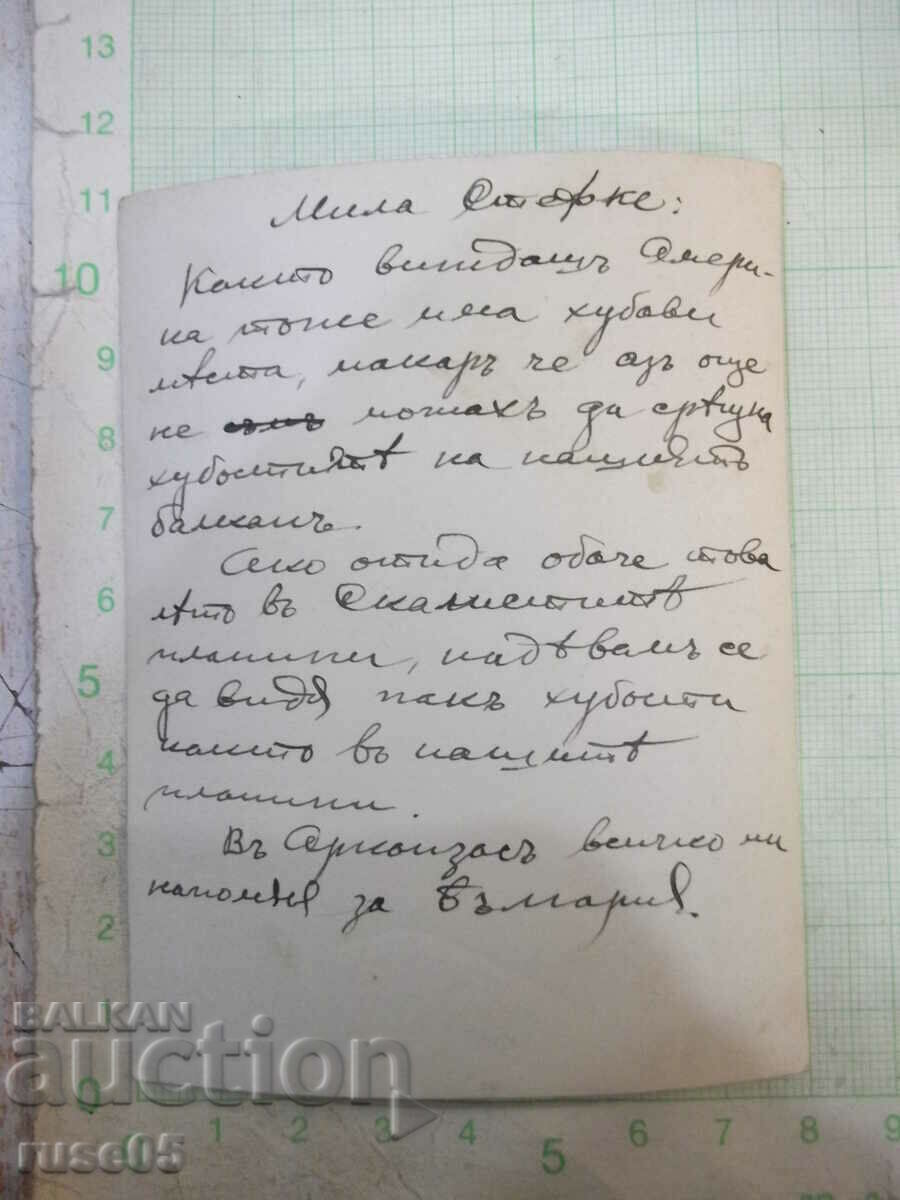 Мила Стефке:
Както виждашъ Амери-
ка тоже има хубави
мѣста, макаръ че азъ още
не съмъ можахъ да срѣщна
хубоститѣ на нашиятъ
балканъ.
Ако отида обаче това
лѣто въ Скалиститѣ
планини, надѣвамъ се
да видя пакъ хубости
както въ нашитѣ
планини.
Въ Арканзасъ всичко ни
напомня за България.
BALKAN
auction
ruse05
13
12
11
10
9
8
7
6
5
4
3
2
1
0
0 1 2 3 4 5 6 7 8 9